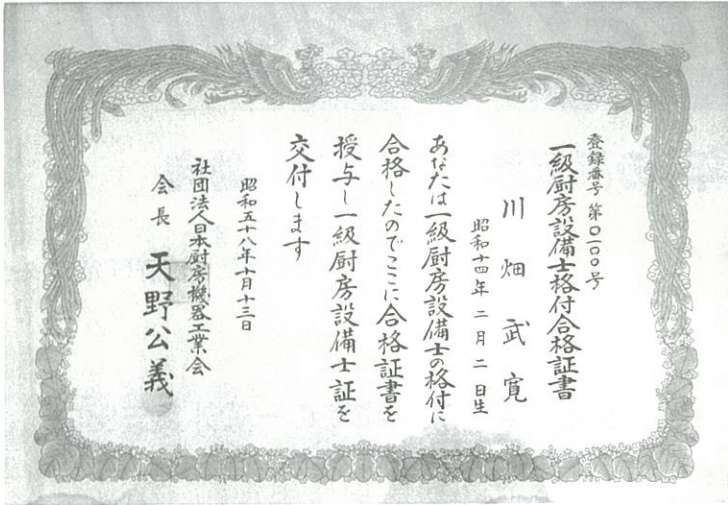 登録番号 第〇一〇〇号
一級厨房設備士格付合格証書
川畑武寛
昭和十四年二月二日生
あなたは一級厨房設備士の格付に
合格したのでここに合格証書を
授与し一級厨房設備士証を
交付します
昭和五十八年十月十三日
社団法人日本厨房機器工業会
会長 天野公義